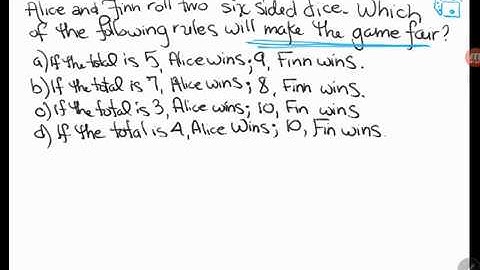 Alice and Finn roll two six sided dice. Which
of the following rules will make the game fair?
a) If the total is 5, Alice wins; 9, Finn wins.
b) If the total is 7, Alice wins; 8, Finn wins.
c) If the total is 3, Alice wins; 10, Fin wins
d) If the total is 4, Alice wins; 10, Fin wins.